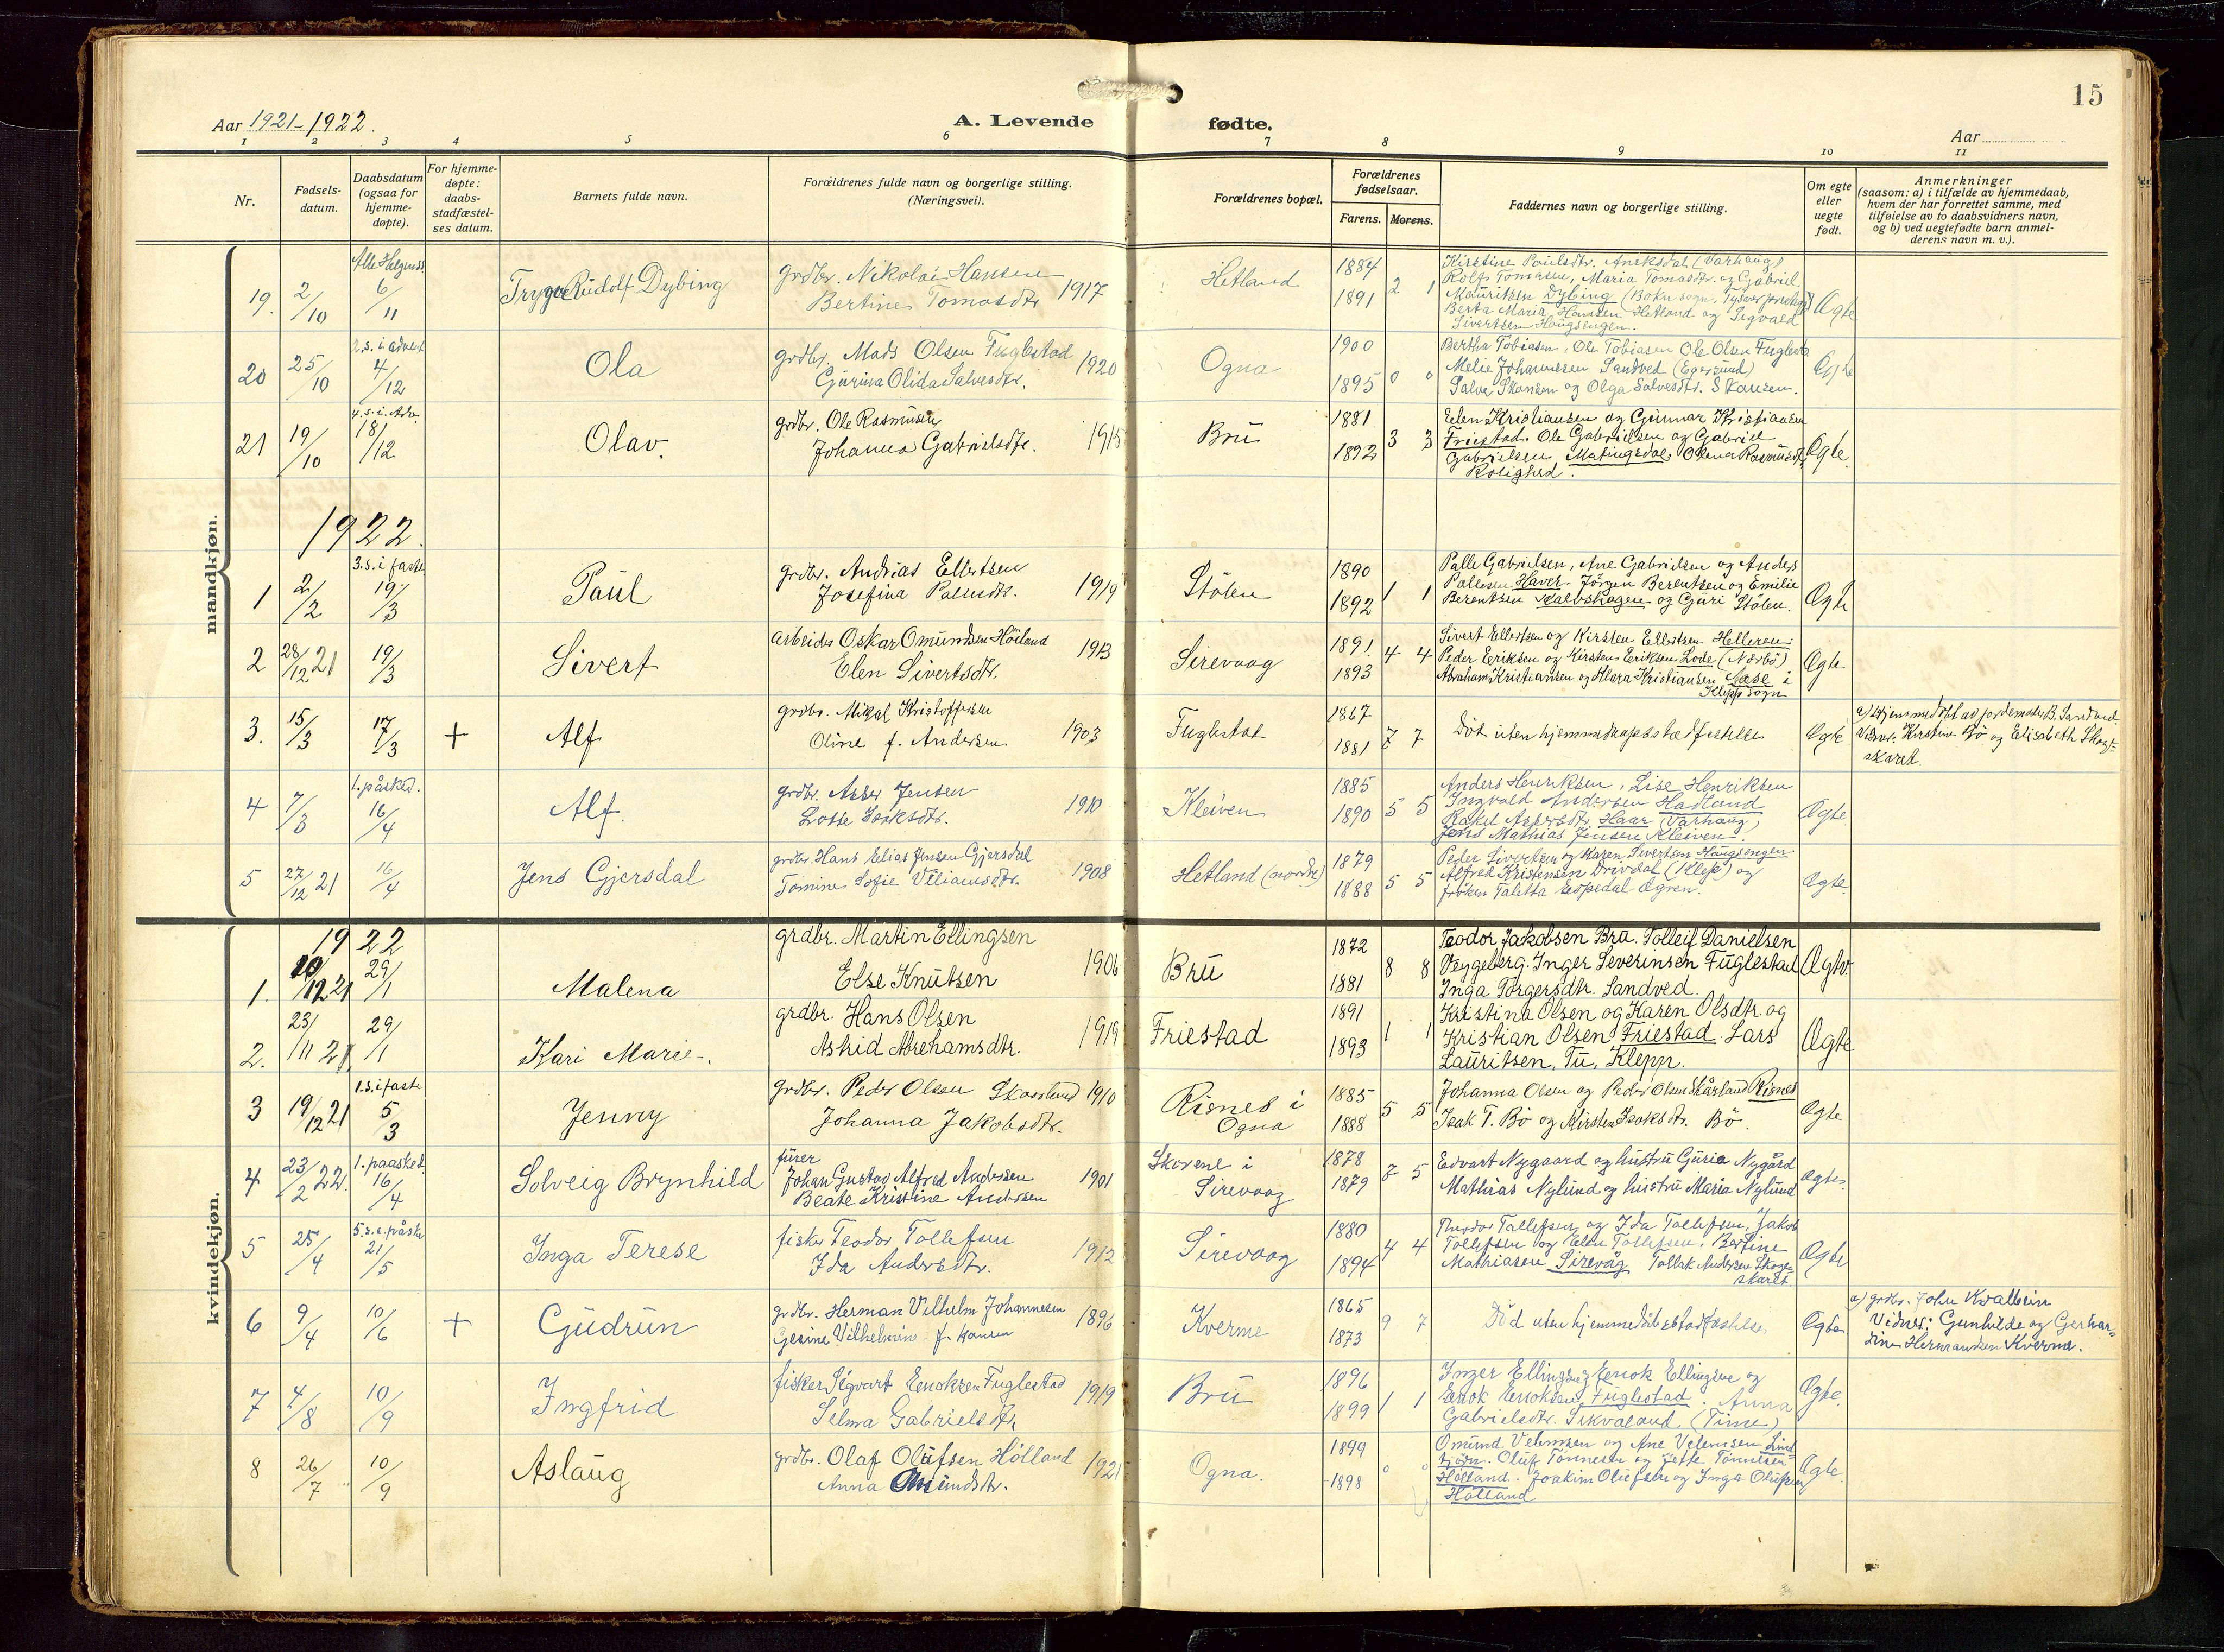 15
Aar 1921-1922.
A. Levende fødte.
Aar
1 2 3 4 5 6 7 8 9 10 11
Nr.
Fødsels-
datum.
Daabsdatum
(ogsaa for
hjemme-
døpte).
For hjemme-
døpte:
daabs-
stadfæstel-
ses datum.
Barnets fulde navn.
Forældrenes fulde navn og borgerlige stilling.
(Næringsvei).
Forældrenes bopæl.
Forældrenes
fødselsaar.
Farens. Morens.
Faddernes navn og borgerlige stilling.
Om egte
eller
uegte
født.
Anmerkninger
(saasom: a) i tilfælde av hjemmedaab,
hvem der har forrettet samme, med
tilføielse av to daabsvidners navn,
og b) ved uegtefødte barn anmel-
derens navn m. v.).
mandkjøn.
19. 2/10 6/11 Trygve Rudolf Dybing
grdbr. Nikolai Hansen
Bertine Tomasdtr 1917
Hetland
1884
1891
2 1
Kirstine Paulsdtr. (Varhaug)
Rolf Tomasen, Maria Tomasdtr. og Gabriel
Mauritsen Dybing (Bokn sogn, Tysvær
Berta Maria Hansen Hetland og Sigvald
Sivertsen Haugsengen.
Ægte
20 25/10 2.s. i advent 4/12 Ola
grdbr. Mads Olsen Fuglestad
Gurina Olida Salvesdtr. 1920
Ogna
1900
1895
0 0
Bertha Tobiasen, Ole Tobiasen Ole Olsen
Melie Johannesen Sandved (Egersund)
Salve Skansen og Olga Salvesdtr. Skansen.
Ægte
21 19/10 4.s.i. Adv. 18/12 Olav.
grdbr. Ole Rasmusen
Johanna Gabrielsdtr. 1915
Bru
1881
1892
3 3
Elen Kristiansen og Gunnar Kristiansen
Friestad. Ole Gabrielsen og Gabriel
Gabrielsen Matingsdal. Olena Rasmusdtr
Rolighed.
Ægte
1922.
1 2/2 3.s. i faste 19/3 Paul
grdbr. Andrias Ellertsen
Josefina Pallesdtr. 1919
Stölen
1890
1892
1 1
Palle Gabrielsen, Ane Gabrielsen og Anders
Pallesen Haver. Jörgen Berentsen og Emilie
Berentsen Kalvshagen og Guri Stölen.
Ægte
2 28/12 21 19/3 Sivert
arbeider Oskar Omundsen Höiland
Elen Sivertsdtr. 1913
Sirevaag
1891
1893
4 4
Sivert Ellertsen og Kirsten Ellertsen Helleren.
Peder Eriksen og Kirsten Eriksen Lode (Nærbö)
Abraham Kristiansen og Klara Kristiansen Næse i
Klepp sogn
Ægte
3. 15/3 17/3 + Alf
grdbr. Mikal Kristoffersen
Oline f. Andersen 1903
Fuglestad
1867
1881
7 7
Död uten
Ægte
a) Hjemmedöbt av jordemoder B. Sandved
Vidner: Kirstine Bö og Elisabeth Skoge-
skaret.
4 7/3 1. påsked. 16/4 Alf.
grdbr. Asser Jensen
Lotte Isaksdtr. 1910
Kleiven
1885
1890
5 5
Anders Henriksen, Lise Henriksen
Ingvald Andersen Hadland
Rakel Assersdtr. Haar (Varhaug)
Jens Mathias Jensen Kleiven.
Ægte.
5 27/12 21 16/4 Jens Gjersdal
grdbr. Hans Elias Jensen Gjersdal
Tomine Sofie Viliamsdtr. 1908
Hetland (nordre)
1879
1888
5 5
Peder Sivertsen og Karen Sivertsen Haugsengen
Alfred Kristensen Drivdal (Klepp) og
fröken Taletta Espedal Ögren.
Ægte.
kvindekjøn.
1922
1. 10/12 21 29/1 Malena
grdbr. Martin Ellingsen
Else Knutsen 1906
Bru
1872
1881
8 8
Teodor Jakobsen Bru. Tolleif Danielsen
Veggeberg. Inger Severinsen Fuglestad
Inga Torgersdtr. Sandved.
Ægte
2. 23/11 21 29/1 Kari Marie.
grdbr. Hans Olsen
Astrid Abrahamsdtr. 1919
Friestad
1891
1893
1 1
Kristina Olsen og Karen Olsdtr og
Kristian Olsen Friestad. Lars
Lauritsen, Tu, Klepp.
Ægte
3 19/12 21 1.s.i faste 5/3 Jenny
grdbr. Peder Olsen Skaarland 1910
Johanna Jakobsdtr.
Risnes i
Ogna
1885
1888
5 5
Johanna Olsen og Peder Olsen Skårland Risnes
Isak T. Bö og Kirsten Isaksdtr. Bö.
Ægte
4 23/2 22. 1. paasked. 16/4 Solveig Brynhild
Johan Gustav Alfred Andersen
Beate Kristine Andersen 1901
Sirevaag
1878
1879
7 5
Edvart Nygaard og hustru Guria Nygård
Mathias Nylund og hustru Maria Nylund
Ægte.
5 25/4 5.s.e.påske 21/5 Inga Terese
fisker Teodor Tollefsen
Ida Andersdtr. 1912
Sirevaag
1880
1894
4 4
Theodor Tollefsen og Ida Tollefsen, Jakob
Tollefsen og Elen Tollefsen, Bertine
Mathiasen Sirevåg Tollak Andersen Skoge-
skaret
Ægte
6 9/4 10/6 + Gudrun
grdbr. Herman Vilhelm Johannesen
Gesine Vilhelmine f. Hansen 1896
Kverme
1865
1873
9 7
Död uten hjemmedöbstadfæstelse
Ægte
a) grdbr. John Kvalbein
Vidner: Gunhilde og Gerhar-
dine Hermandsen Kverme.
7 4/8 10/9 Ingfrid
fisker Sigvart Enoksen Fuglestad
Selma Gabrielsdtr 1919
Bru
1896
1899
1 1
Inger Ellingsen og Enok Ellingsen og
Enok Enoksen Fuglestad. Anna
Gabrielsdtr. (Time)
Ægte.
8 26/7 10/9 Aslaug
grdbr. Olaf Olufsen Hölland
Anna Omundsdtr. 1921
Ogna.
1899
1898
0 0
Omund Velemsen og Ane Velemsen Lind
tjörn. Oluf Tönnesen og Jette Tönnesen
Hölland. Joakim Olufsen og Inga Olufsen
Hölland
Ægte.